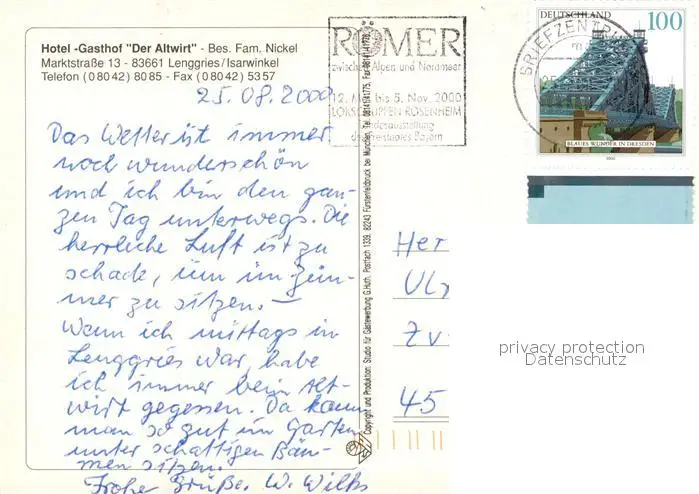 Hotel -Gasthof "Der Altwirt" - Bes. Fam. Nickel
Marktstraße 13 - 83661 Lenggries/Isarwinkel
Telefon (0 80 42) 80 85 - Fax (0 80 42) 53 57
25.08.2000
Das Wetter ist immer
noch wunderschön
und ich bin den gan-
zen Tag unterwegs. Die
herrliche Luft ist zu
schade, um im Zim-
mer zu sitzen. –
Wenn ich mittags in
Lenggries war, habe
ich immer beim Alt-
wirt gegessen. Da kann
man so gut im Garten
unter schattigen Bäu-
men sitzen.
Frohe Grüße. W. Wilks
RÖMER
zwischen Alpen und Nordmeer
12. Mai bis 5. Nov. 2000
LOKSCHUPPEN ROSENHEIM
Landesausstellung
des Freistaates Bayern
Copyright und Produktion: Studio für Gästewerbung G. Huth, Postfach 1339, 82243 Fürstenfeldbruck bei München, Tel. 08141/41775, Fax 08141/41778
BRIEFZENTRUM
DEUTSCHLAND 100
BLAUES WUNDER IN DRESDEN
2000
Her
Ul
Zv
45
privacy protection
Datenschutz